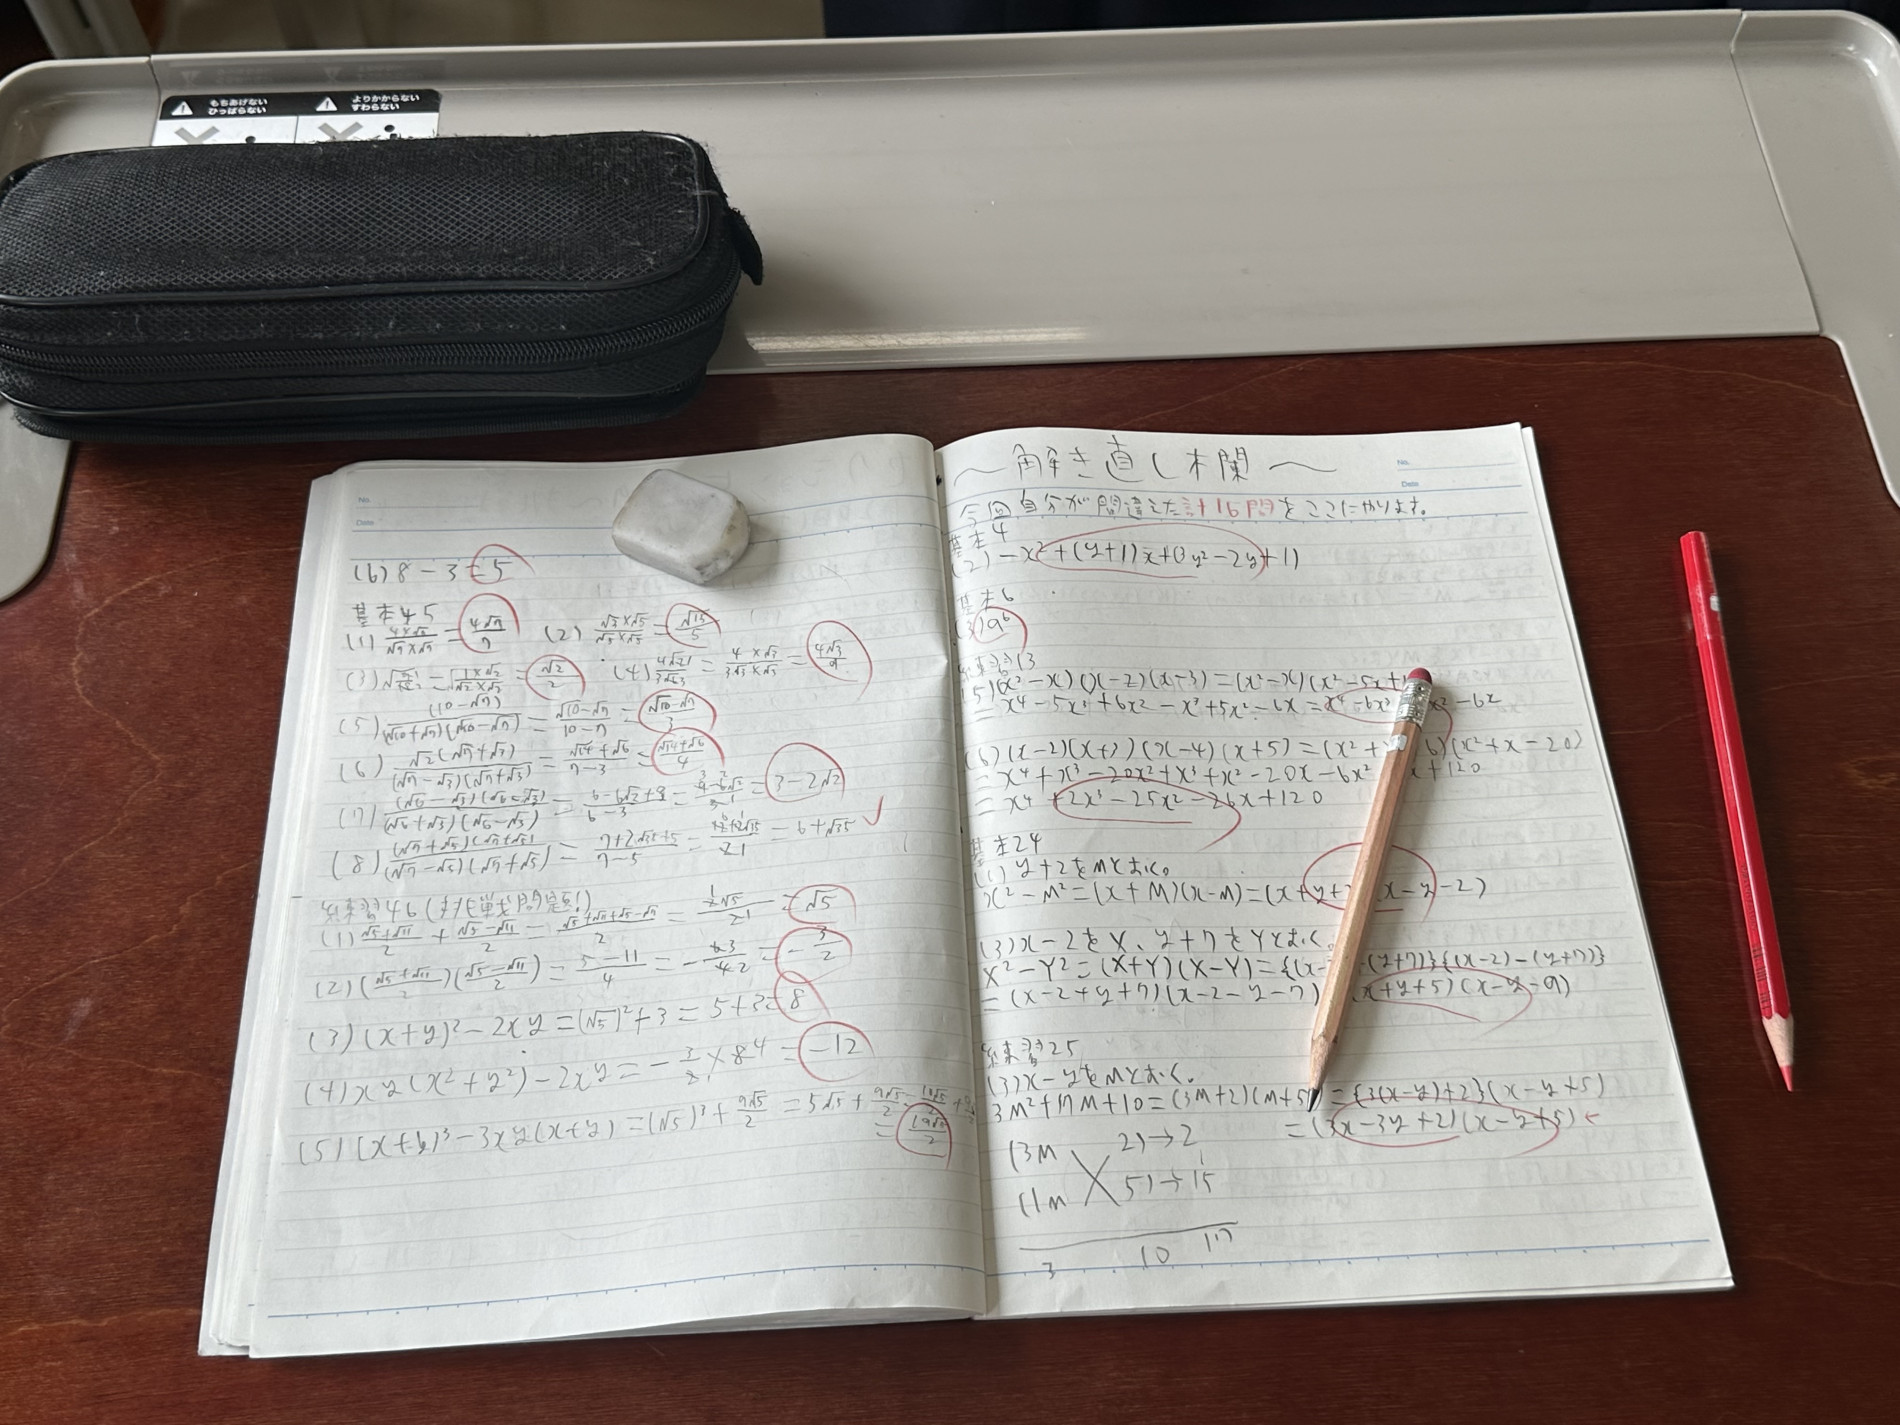 もちあげない
ひっぱらない
よりかからない
すわらない
No.
Date
(6) 8 - 3 = 5
基本45
(1) 4×√7/√7×√7 = 4√7/7 (2) √3×√5/√5×√5 = √15/5
(3) = 1×√2/√2×√2 = √2/2 (4) = 4×√3/3√3×√3 = 4√3/9
(5) (√10-√7)/(√10+√7)(√10-√7) = √10-√7/10-7 = √10-√7/3
(6) √2(√7+√3)/(√7-√3)(√7+√3) = √14+√6/7-3 = √14+√6/4
(7) (√6-√3)(√6-√3)/(√6+√3)(√6-√3) = 6-6√2+3/6-3 = 3-2√2
(8) (√7+√5)(√7+√5)/(√7-√5)(√7+√5) = 7+2√35+5/7-5 = 6+√35
練習46(挑戦問題!)
(1) √5+√11/2 + √5-√11/2 = 2√5/2 = √5
(2) (√5+√11/2)(√5-√11/2) = 5-11/4 = - 3/2
(3) (x+y)²-2xy = (√5)²+3 = 5+3 = 8
(4) xy(x²+y²)-2xy = -3/2×8 = -12
(5) (x+y)³-3xy(x+y) = (√5)³+9√5/2 = 5√5+9√5/2
= 19√5/2
~解き直し欄~
No.
Date
今回自分が間違えた計16問をここにやります。
基本4
(2) -x²+(y+1)x+(3y²-2y+1)
基本6
(3) a⁶
練習13
(5) (x²-x)(x-2)(x-3) = (x²-x)(x²-5x+
= x⁴-5x³+6x²-x³+5x²-6x = x⁴-6x³ x²-6x
(6) (x-2)(x+3)(x-4)(x+5) = (x²+ 6)(x²+x-20)
= x⁴+x³-20x²+x³+x²-20x-6x² x+120
= x⁴+2x³-25x²-26x+120
基本24
(1) y+2をMとおく。
x²-M² = (x+M)(x-M) = (x+y+ x-y-2)
(3) x-2をX、y+7をYとおく。
X²-Y² = (X+Y)(X-Y) = {(x- (y+7)}{(x-2)-(y+7)}
= (x-2+y+7)(x-2-y-7) x+y+5)(x-y-9)
練習25
(3) x-yをMとおく。
3M²+17M+10 = (3M+2)(M+5) = {3(x-y)+2}(x-y+5)
= (3x-3y+2)(x-y+5)
(3M 2)→2
(1M 5)→15
3 10 17